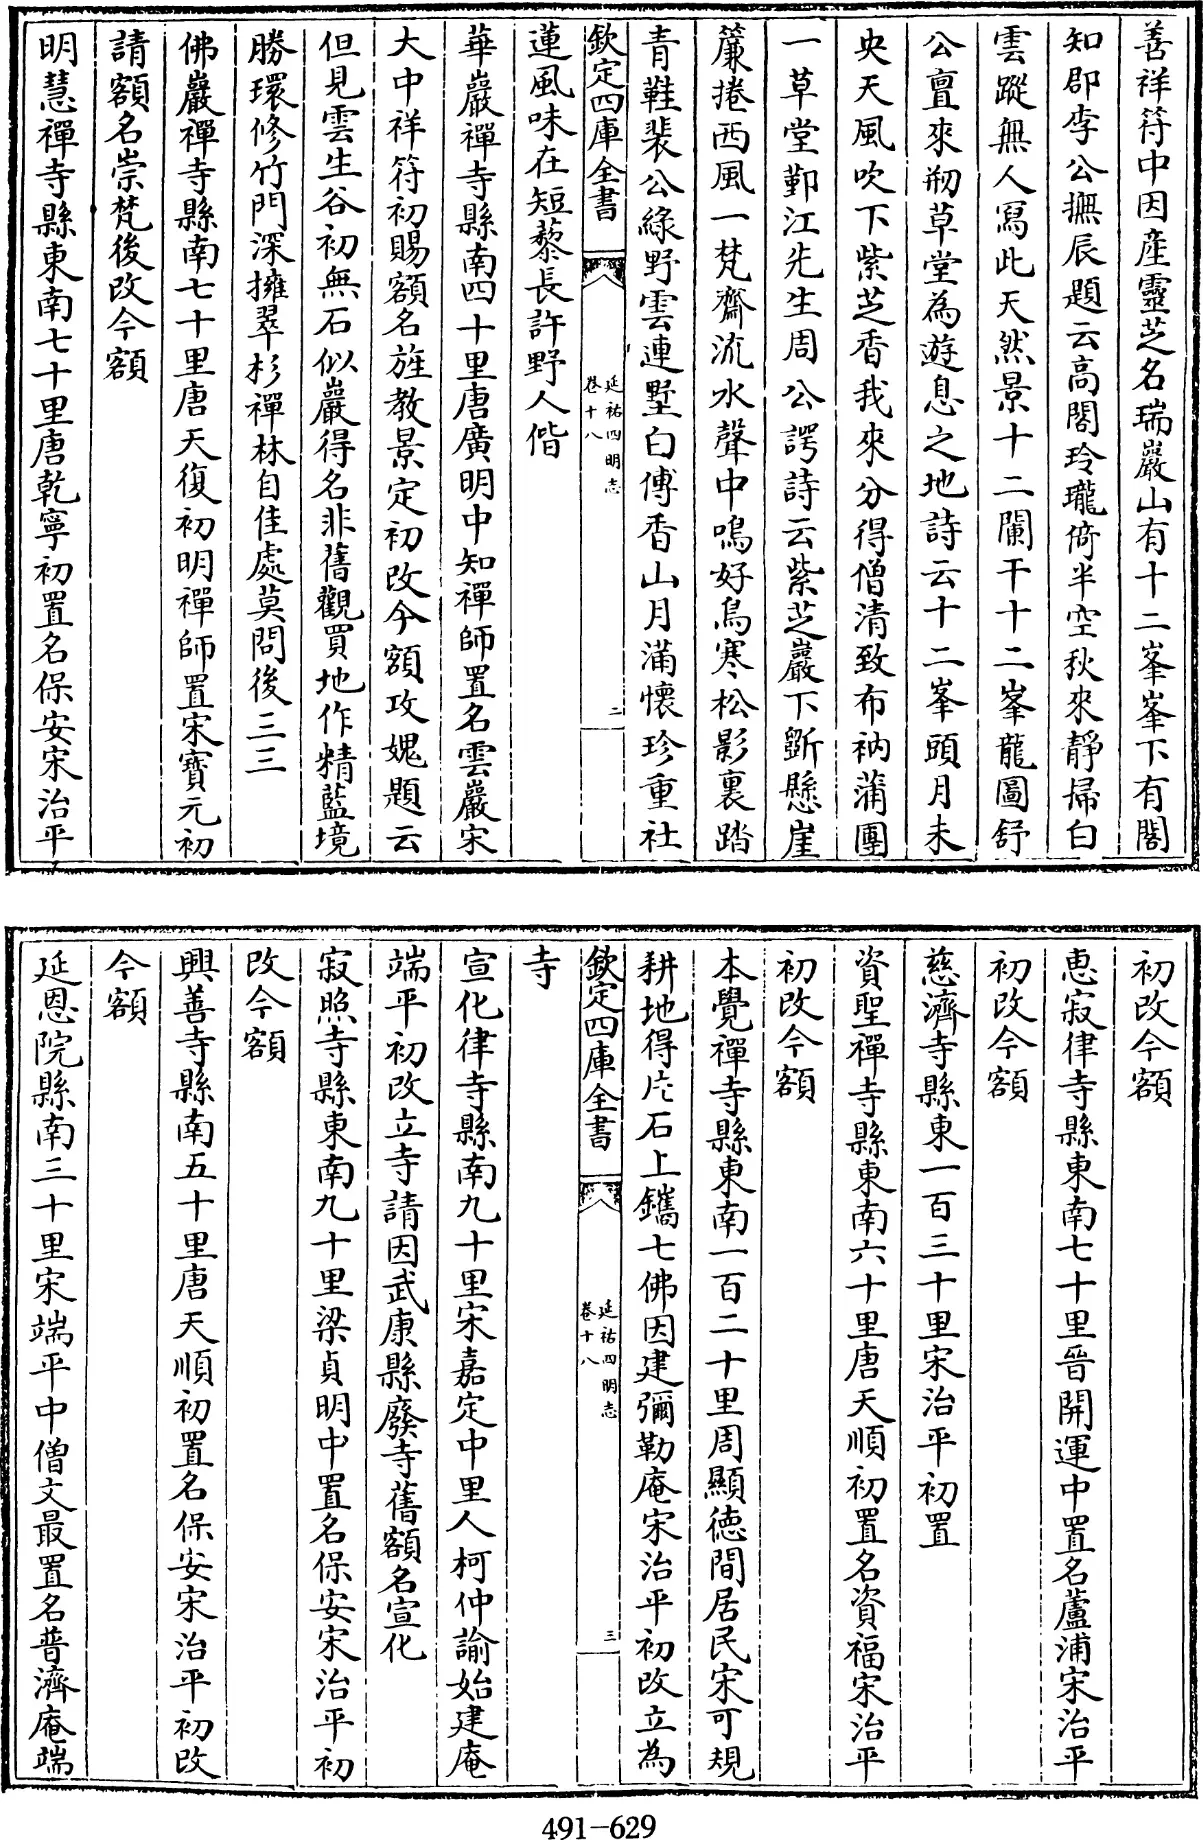 善祥符中因産靈芝名瑞巖山有十二峯峯下有閣
知郡李公撫辰題云高閣玲瓏倚半空秋來靜掃白
雲蹤無人寫此天然景十二闌干十二峯龍圖舒
公亶來剏草堂為遊息之地詩云十二峯頭月未
央天風吹下紫芝香我來分得僧清致布衲蒲團
一草堂鄞江先生周公諤詩云紫芝巖下斵懸崖
簾捲西風一梵齋流水聲中鳴好鳥寒松影裏踏
青鞋裴公綠野雲連墅白傅香山月滿懷珍重社
欽定四庫全書
延祐四明志
卷十八
二
蓮風味在短藜長許野人偕
華巖禪寺縣南四十里唐廣明中知禪師置名雲巖宋
大中祥符初賜額名旌教景定初改今額攻媿題云
但見雲生谷初無石似巖得名非舊觀買地作精藍境
勝環修竹門深擁翠杉禪林自佳處莫問後三三
佛巖禪寺縣南七十里唐天復初明禪師置宋寳元初
請額名崇梵後改今額
明慧禪寺縣東南七十里唐乾寧初置名保安宋治平
初改今額
惠寂律寺縣東南七十里晉開運中置名蘆浦宋治平
初改今額
慈濟寺縣東一百三十里宋治平初置
資聖禪寺縣東南六十里唐天順初置名資福宋治平
初改今額
本覺禪寺縣東南一百二十里周顯德間居民宋可規
耕地得片石上鐫七佛因建彌勒庵宋治平初改立為
欽定四庫全書
延祐四明志
卷十八
三
寺
宣化律寺縣南九十里宋嘉定中里人柯仲諭始建庵
端平初改立寺請因武康縣廢寺舊額名宣化
寂照寺縣東南九十里梁貞明中置名保安宋治平初
改今額
興善寺縣南五十里唐天順初置名保安宋治平初改
今額
延恩院縣南三十里宋端平中僧文最置名普濟庵端
491-629